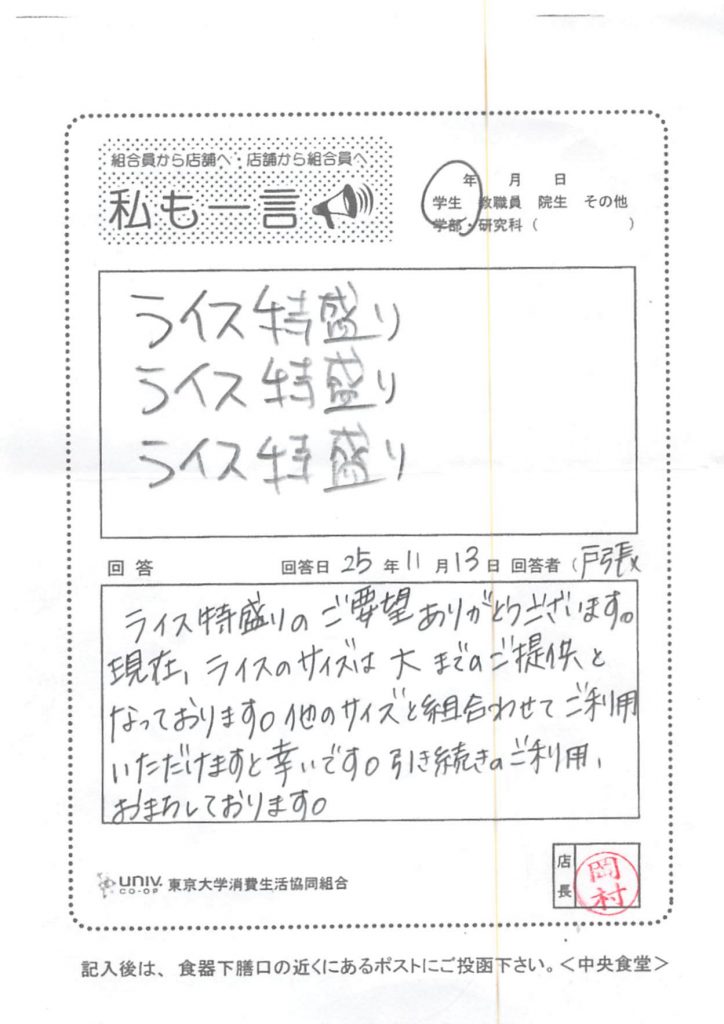 組合員から店舗へ・店舗から組合員へ
私も一言
年 月 日
学生 教職員 院生 その他
学部・研究科（ ）
ライス特盛り
ライス特盛り
ライス特盛り
回答 回答日 25年11月13日 回答者（戸張
ライス特盛りのご要望ありがとうございます。
現在、ライスのサイズは大までのご提供と
なっております。他のサイズと組合わせてご利用
いただけますと幸いです。引き続きのご利用、
おまちしております。
店長 岡村
UNIV. CO-OP 東京大学消費生活協同組合
記入後は、食器下膳口の近くにあるポストにご投函下さい。＜中央食堂＞